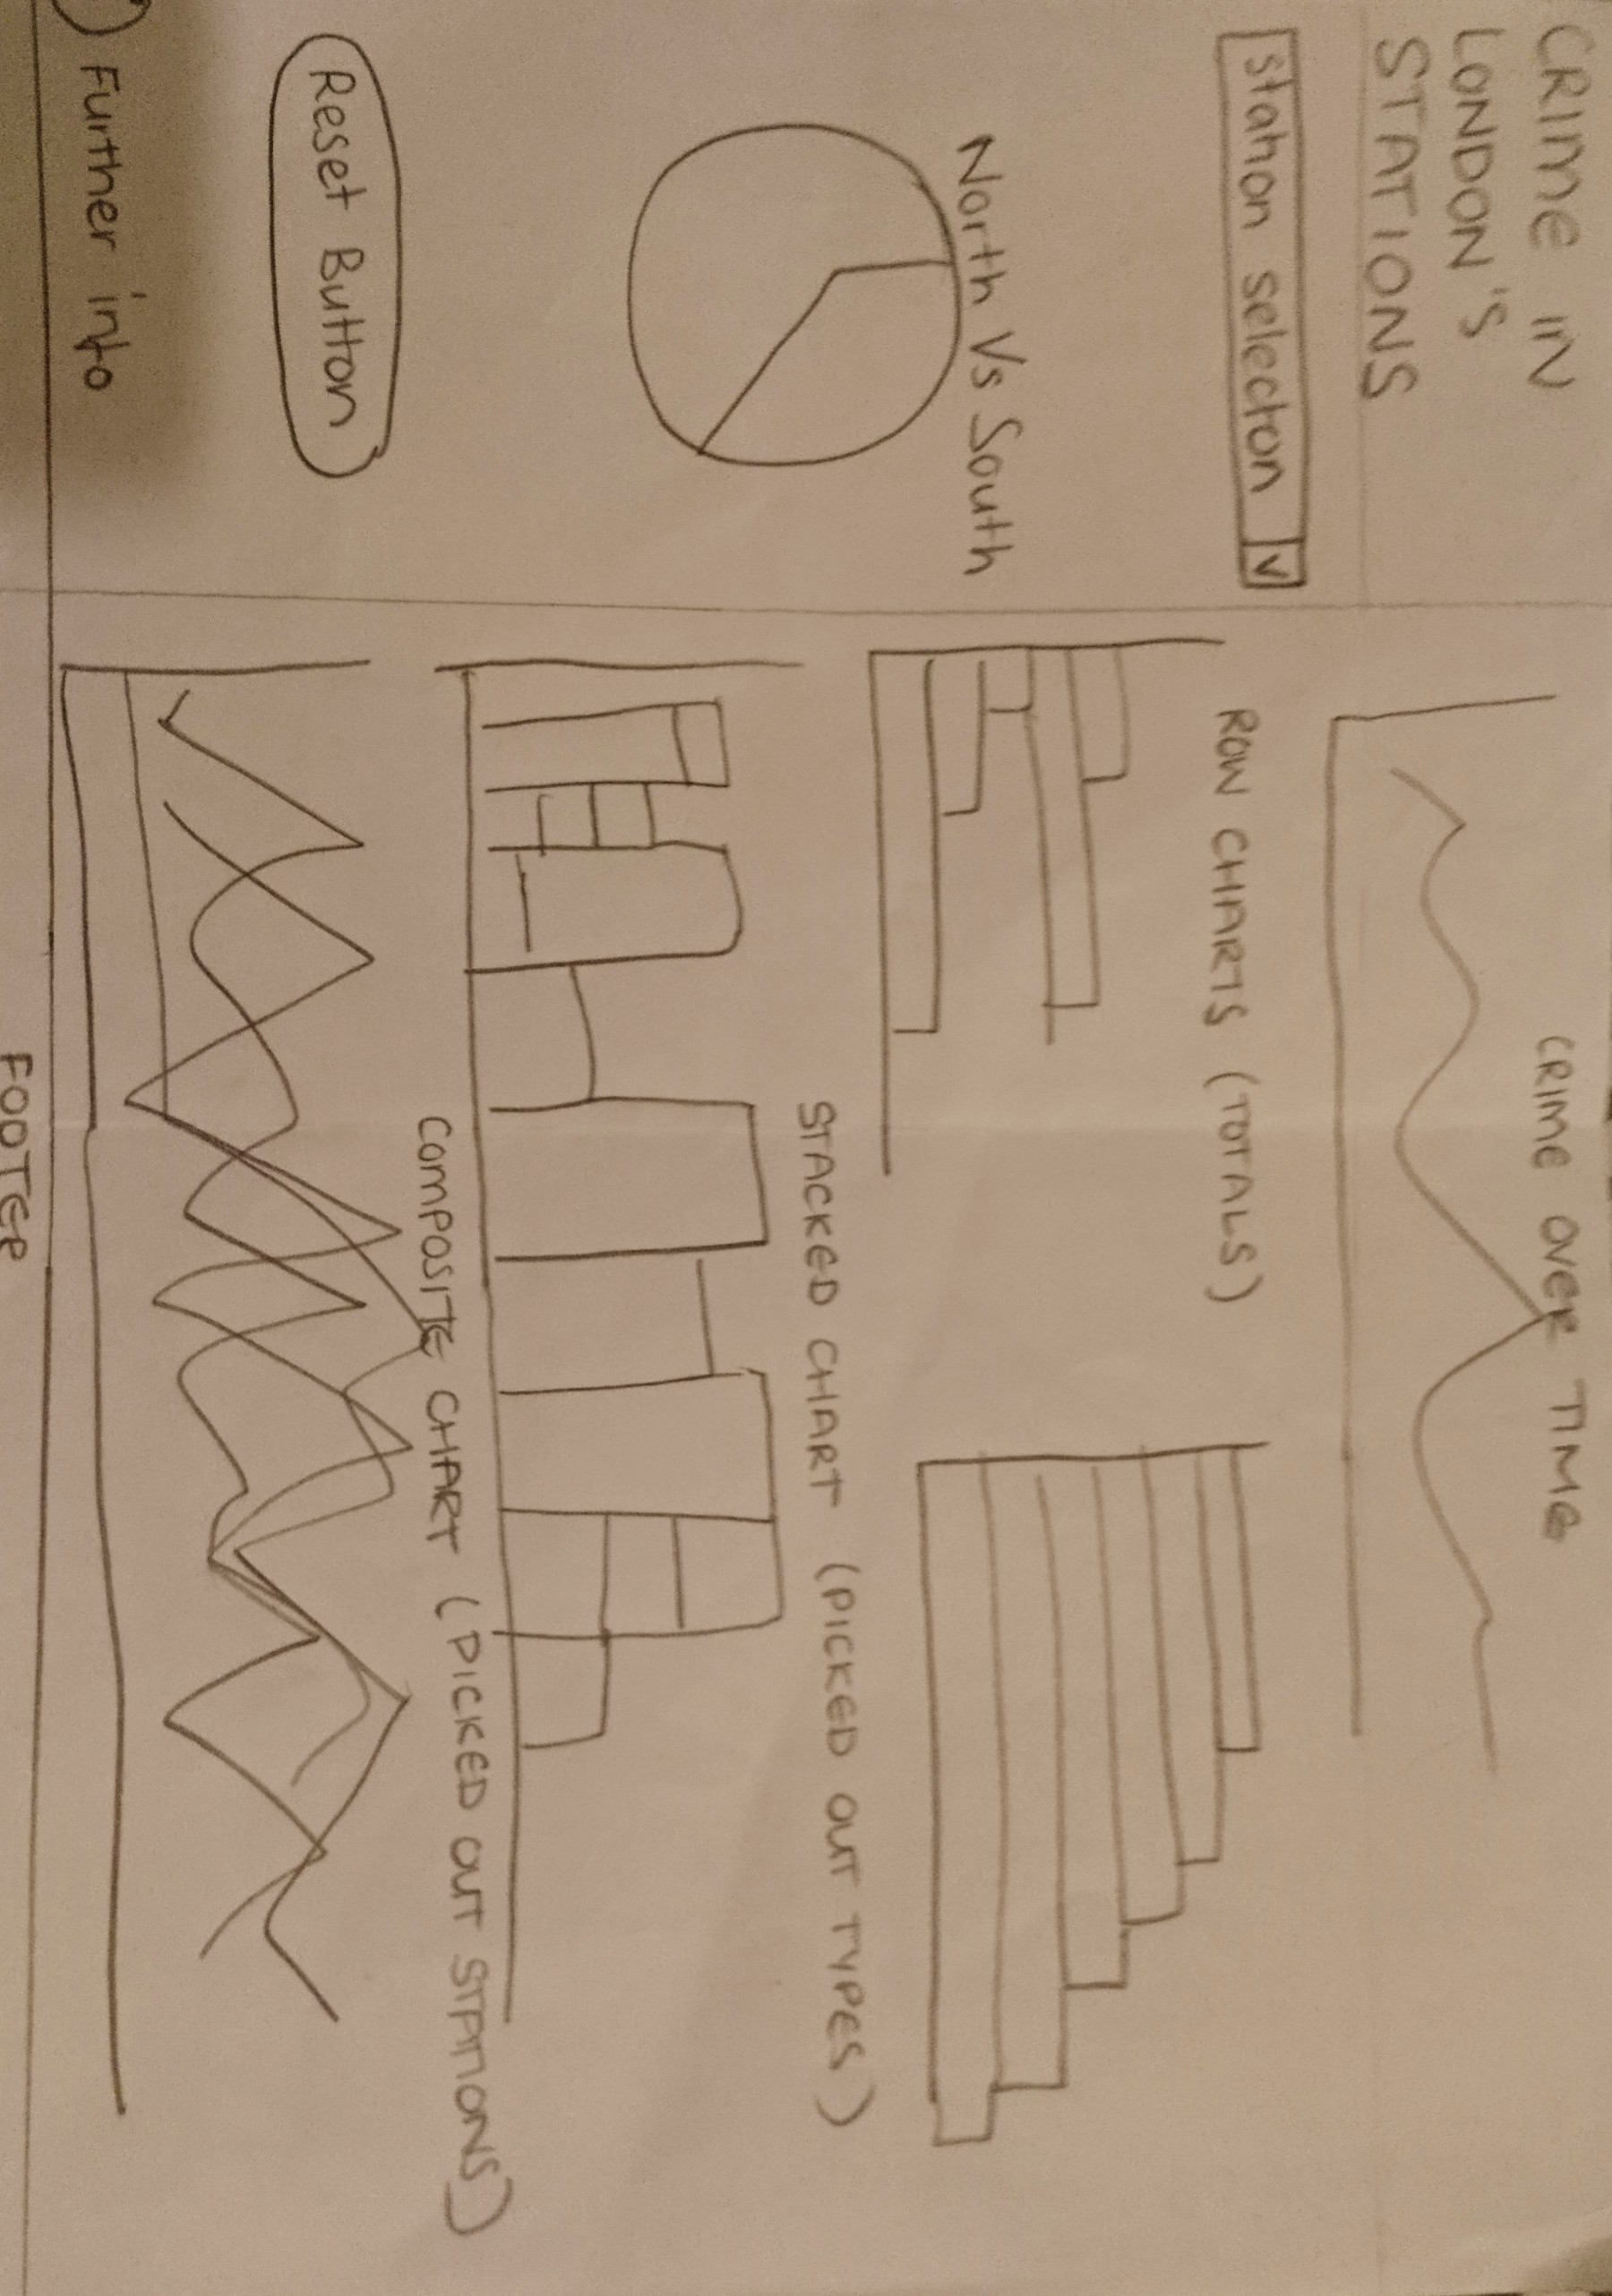 CRIME IN
LONDON'S
STATIONS
Station selection V
North Vs South
Reset Button
Further info
CRIME OVER TIME
ROW CHARTS (TOTALS)
STACKED CHART (PICKED OUT TYPES)
COMPOSITE CHART (PICKED OUT STATIONS)
FOOTER